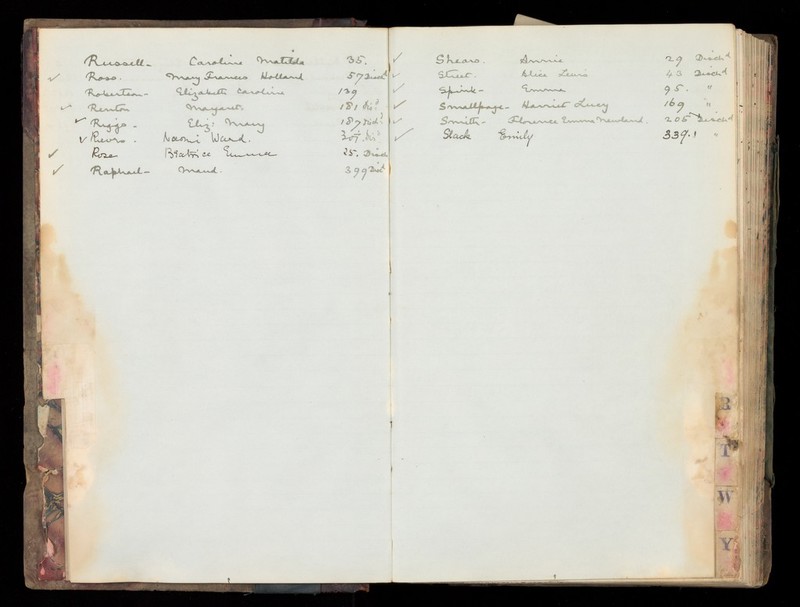 Russell - Caroline Matilda 35.
Ross. Mary Frances Holland 57 Disch
Robertson - Elizabeth Caroline 139
Renton Margaret. 181 Dis
Riggs - Eliz: Mary 187 Dis
Naomi Ward. 307. Dis
Rose Beatrice Emma 25. Disch
Raphael - Maud. 399 Disc
Shears. Annie 29 Disch'd
Street. Alice Lewis 43 Disch'd
Spink - Emma 95. "
Smallpage - Harriet Lucy 169 "
Smith - Florence Emma Newland. 205 Disch'd
Slack Emily 339. "
R
T
W
Y